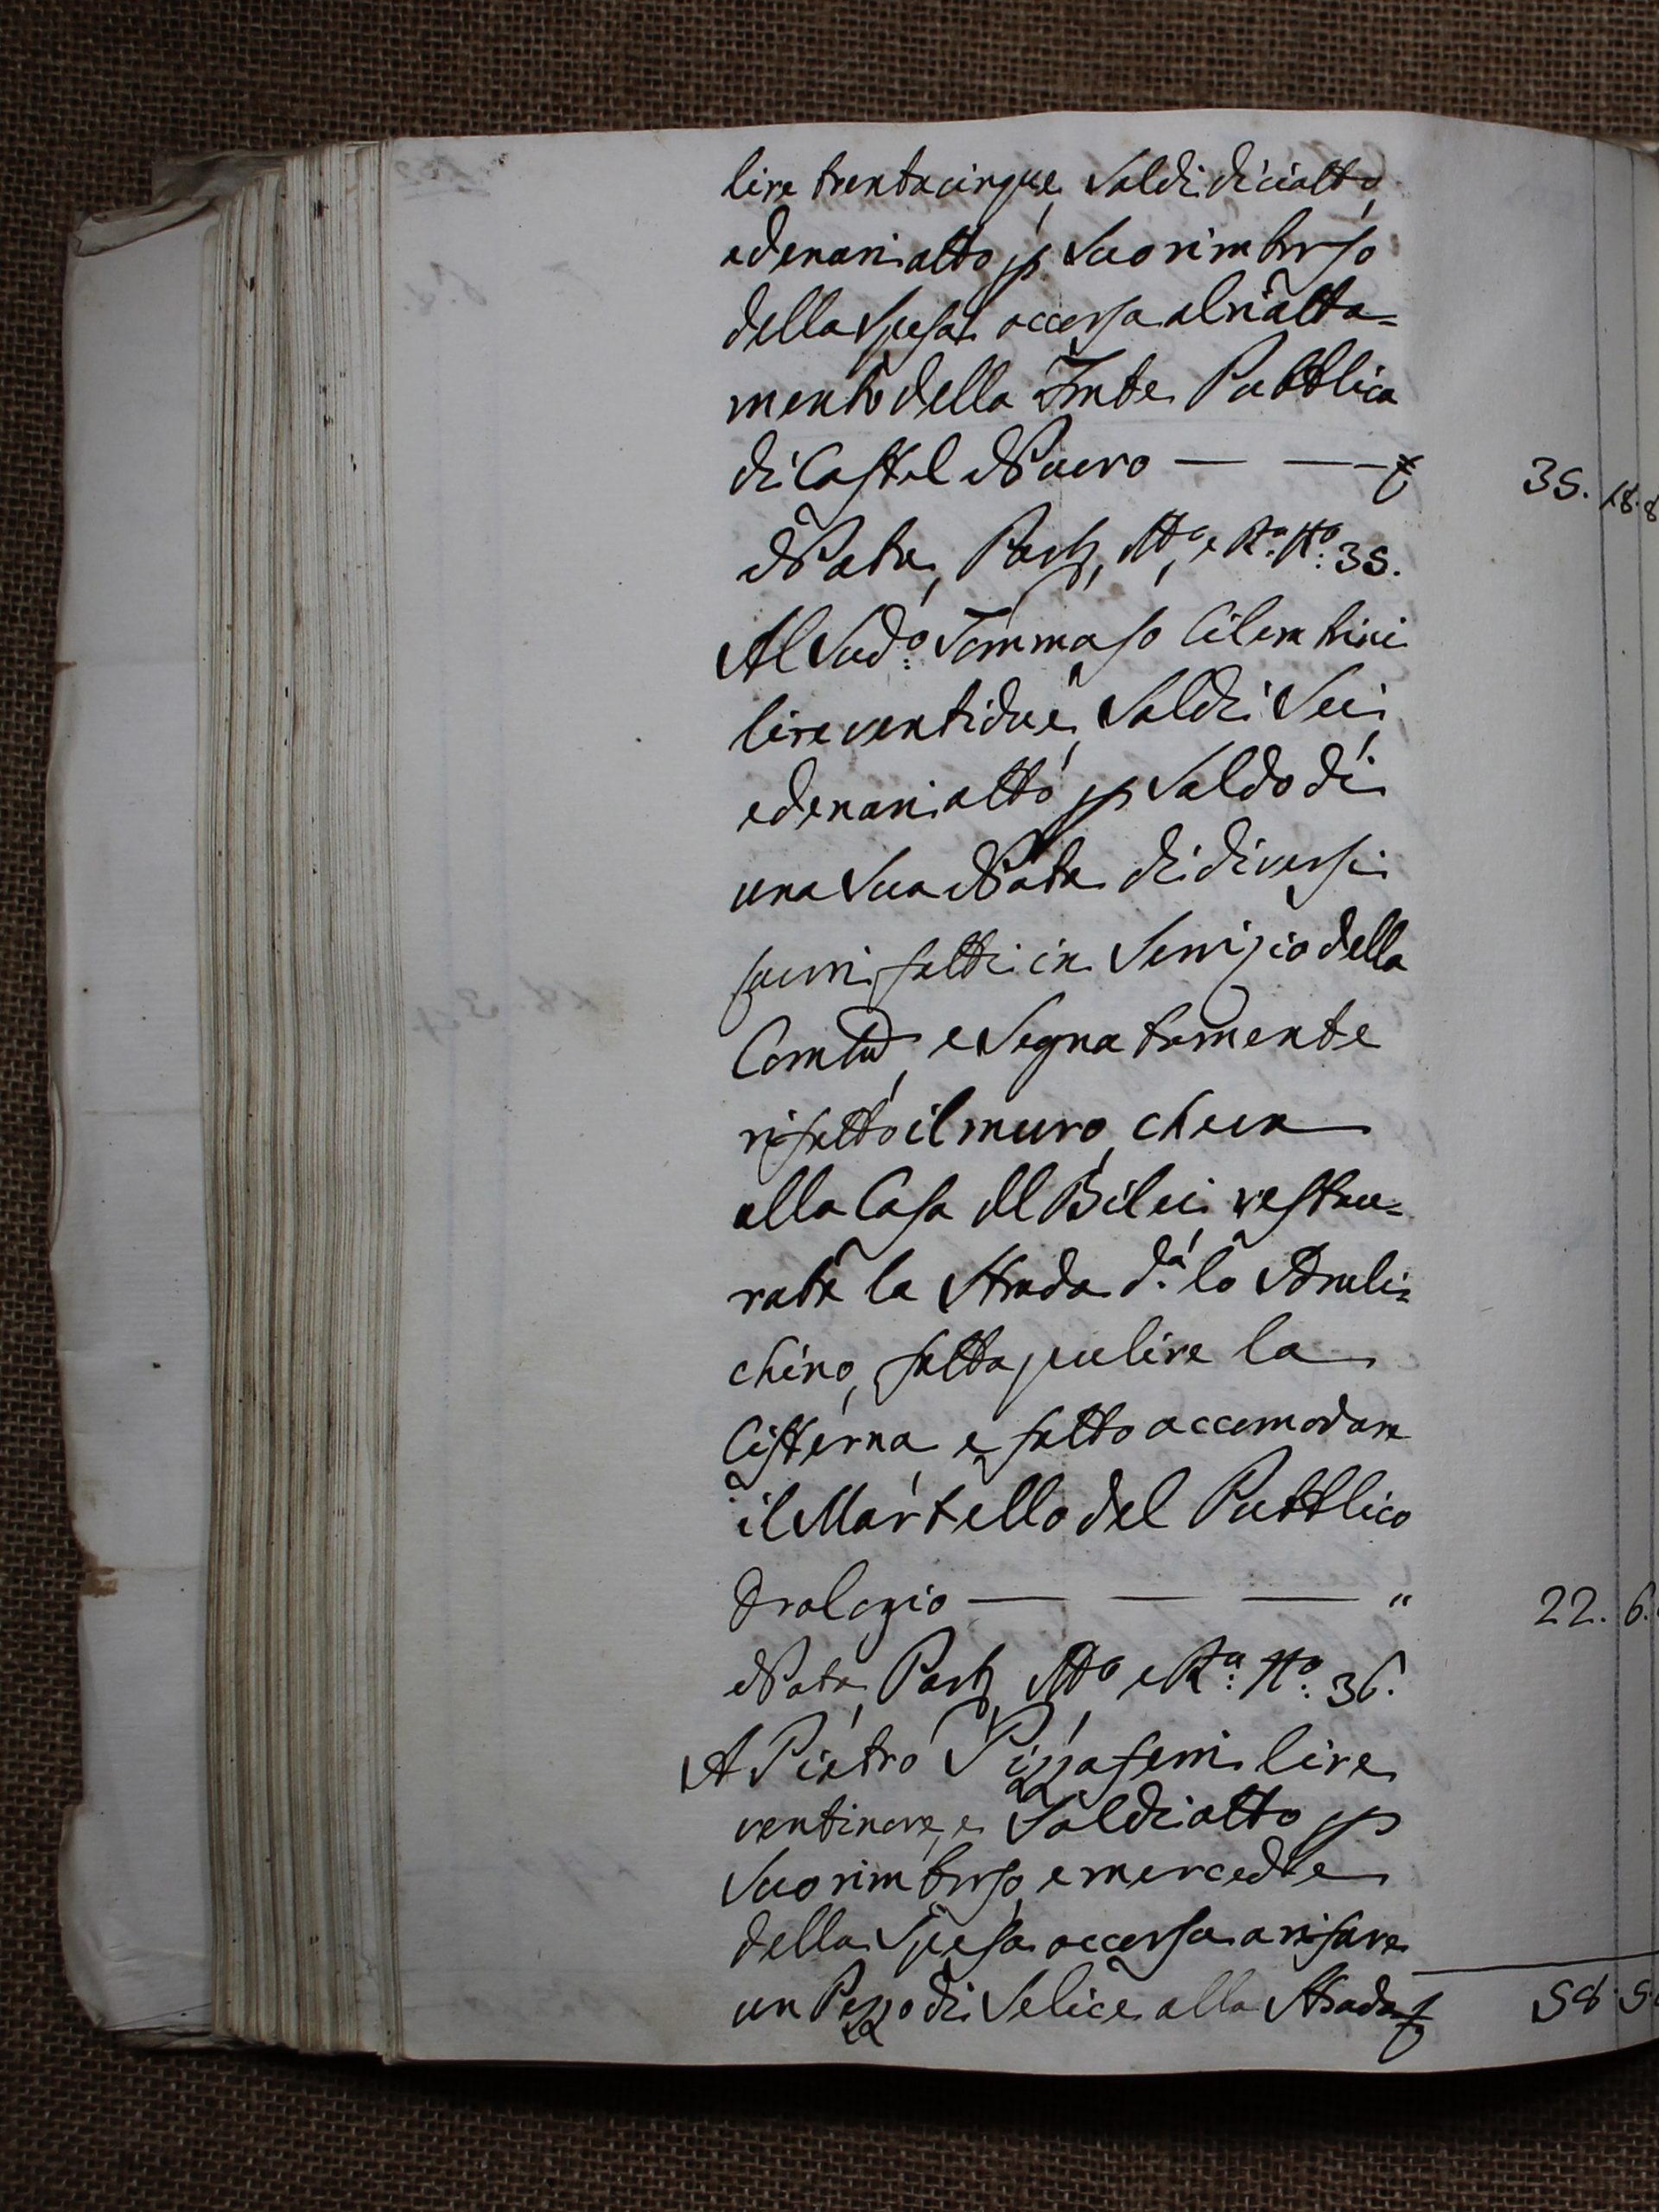 lire trentacinque, Soldi diciotto,
e denari otto p Suo rimborso
della Spesa occorsa al riatta=
mento della Fonte Pubblica
di Castel Nuovo — — — £ 35. 18. 8
Nota, Part, Mto, e Ra. No. 35.
Al Sudo. Tommaso Cilembrini
lire ventidue, Soldi Sei,
e denari otto p Saldo di
una Sua Nota di diversi
lavori fatti in Servizio della
Comtà, e Segnatamente
rifatto il muro, che è
alla Casa del Bilei, restau=
rata la Strada da. lo
chino, fatta pulire la
Cisterna, e fatto accomodare
il Martello del Pubblico
Orologio — — — " 22. 6.
Nota, Part, Mto, e Ra. No. 36.
A Pietro Pizzaferri lire
ventinove, e Soldi otto p
Suo rimborso, e mercede
della Spesa occorsa a rifare
un Pezzo di Selice alla Strada £ 58. 5